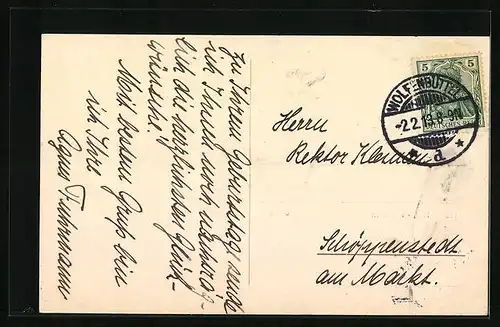 Zu Ihrem Geburtstage sende
ich Ihnen noch nachträg-
lich die herzlichsten Glück-
wünsche.
Mit bestem Gruß bin
ich Ihre
Agnes Fuhrmann
5 5
WOLFENBÜTTEL
-2.2.13.8-9N
* d *
Herrn
Rektor
Schöppenstedt
am Markt.